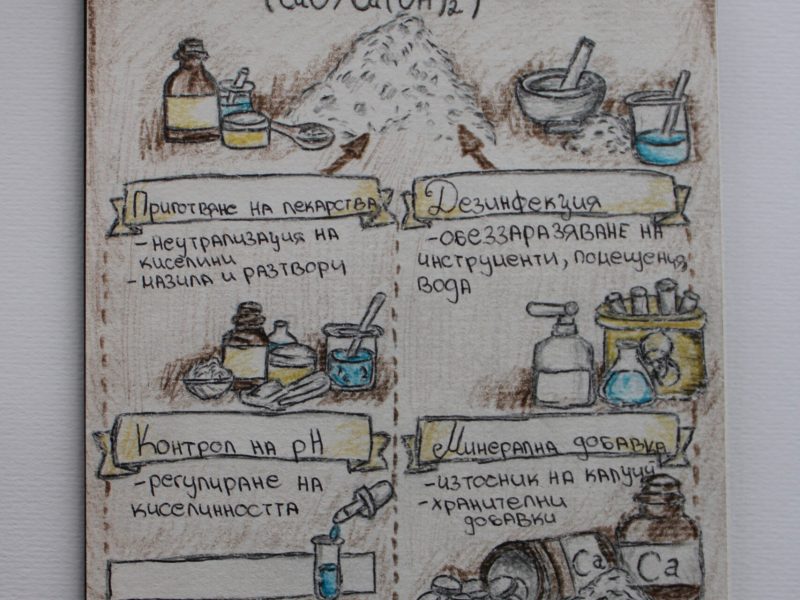 (CaO/Ca(OH)₂)
Приготвяне на лекарства
-неутрализация на
киселини
-мазила и разтвори
Дезинфекция
-обеззаразяване на
инструменти, помещения,
вода
Контрол на pH
-регулиране на
киселинността
Минерална добавка
-източник на калций
-хранителни
добавки
Ca
Ca